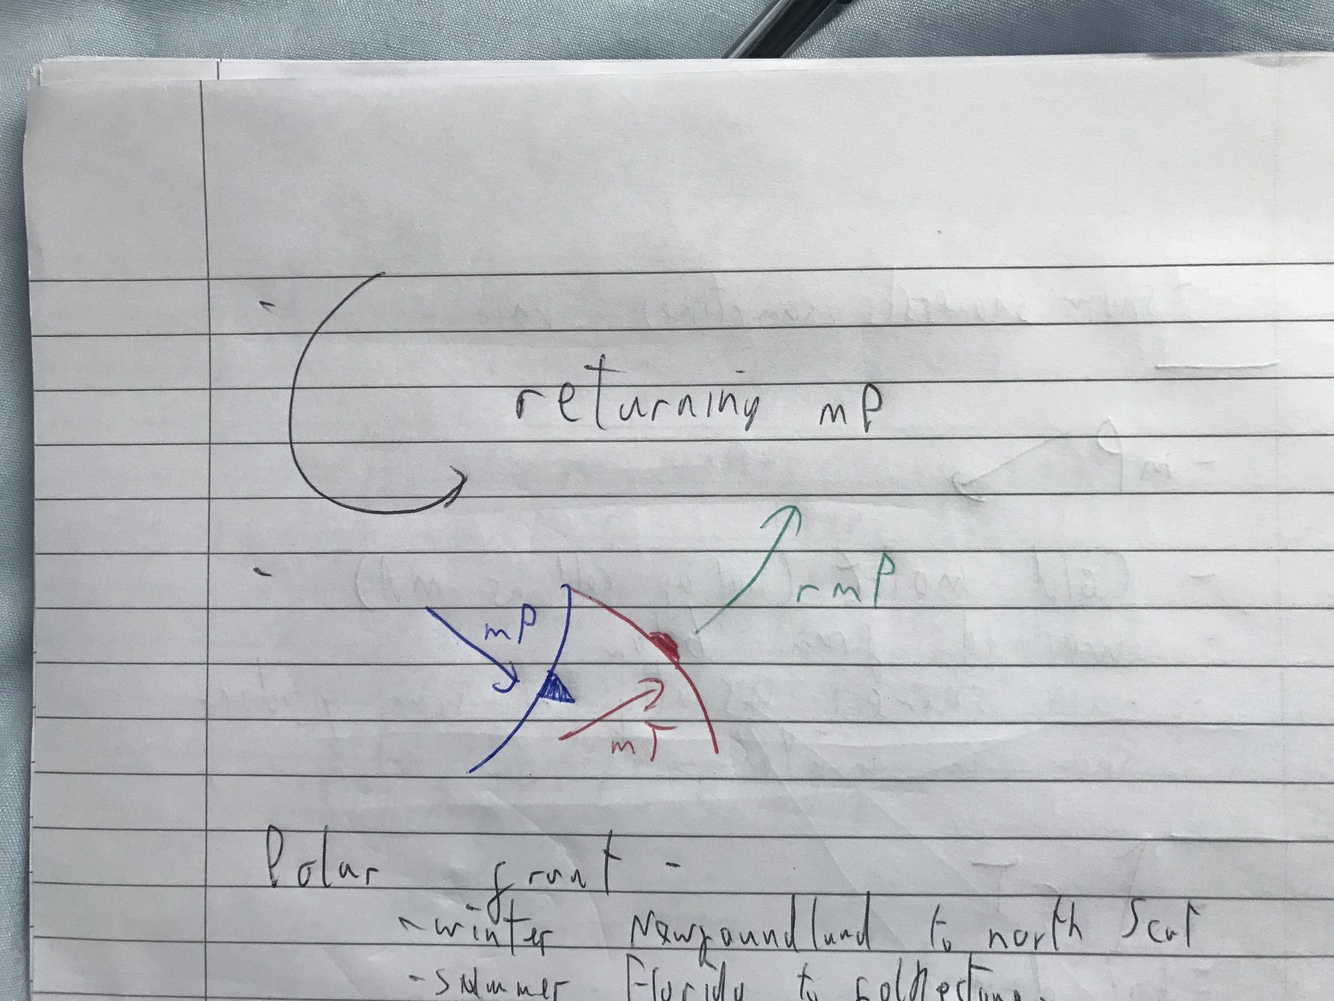 - returning mP
- mP rmP
mT
Polar front -
- winter Newfoundland to north Scot
- Summer Florida to